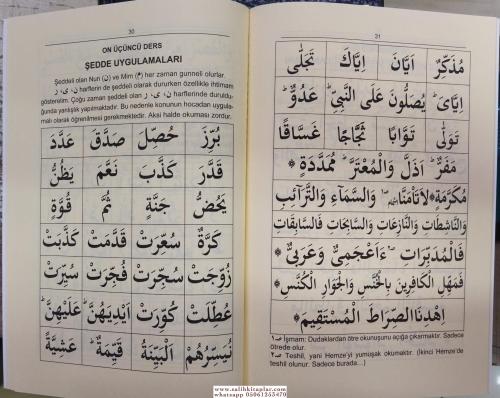 30
ON ÜÇÜNCÜ DERS
ŞEDDE UYGULAMALARI
Şeddeli olan Nun (ن) ve Mim (م) her zaman gunneli olurlar.
harflerin de şeddeli olarak dururken özellikle ihtimam
gösterelim. Çoğu zaman şeddeli olan harflerinde durulduğunda
yanlışlık yapılmaktadır. Bu nedenle konunun hocadan uygula-
malı olarak öğrenilmesi gerekmektedir. Aksi halde okuması zordur.
بُرِّزَ حُصِّلَ صَدَّقَ عَدَّدَ
قَدَّرَ كَذَّبَ نَعَّمَ يَظُنُّ
يَحُضُّ جَنَّةٍ ثُمَّ قُوَّةٍ
كَرَّةٌ سُعِّرَتْ قَدَّمَتْ كَذَّبَتْ
زُوِّجَتْ سُجِّرَتْ فُجِّرَتْ سُيِّرَتْ
عُطِّلَتْ كُوِّرَتْ اَيْدِيَهُنَّ عَلَيْهِنَّ
نُيَسِّرُهُمْ اَلْبَيِّنَةُ قَيِّمَةٌ عَشِيَّةً
31
مُذَكِّرٌ اَيَّانَ اِيَّاكَ تَجَلّٰى
اِيَّاىَ يُصَلُّونَ عَلَى النَّبِيِّ عَدُوٌّ
تَوَلّٰى تَوَّابًا ثَجَّاجًا غَسَّاقًا
مَفَرٌّ اَذَلَّ وَالْمُعْتَرَّ مُمَدَّدَةٍ
مُكَرَّمَةٍ لَا تَأْمَنَّا وَالسَّمَاءِ وَالتَّرَائِبِ
وَالنَّاشِطَاتِ وَالنَّازِعَاتِ وَالسَّابِحَاتِ فَالسَّابِقَاتِ
فَالْمُدَبِّرَاتِ ءَاَعْجَمِيٌّ وَعَرَبِيٌّ
فَمَهِّلِ الْكَافِرِينَ بِالْخُنَّسِ وَالْجَوَارِ الْكُنَّسِ
اِهْدِنَا الصِّرَاطَ الْمُسْتَقِيمَ
İşmam: Dudaklardan ötre okunuşunu açığa çıkarmaktır. Sadece
ötrede olur.
Teshil, yani Hemze'yi yumuşak okumaktır. (İkinci Hemze'de
teshil olunur. Sadece burada...)
www.salihkitaplar.com
whatsapp 05061253470